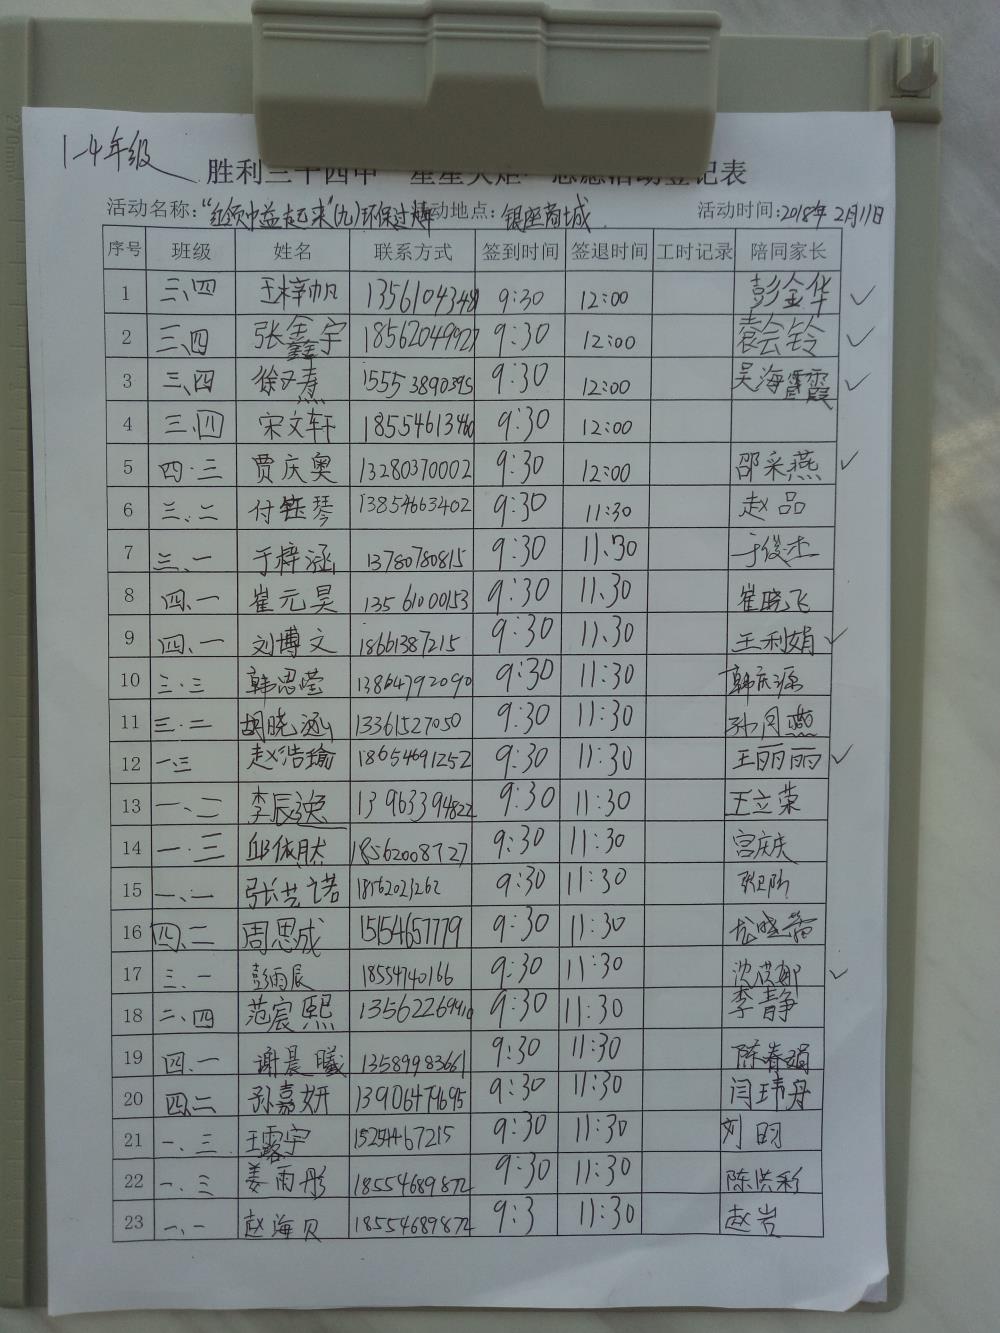 1-4年级
胜利三十四中 星星火炬 志愿活动登记表
活动名称: 活动地点: 银座商城 活动时间: 2018年2月11日
序号 班级 姓名 联系方式 签到时间 签退时间 工时记录 陪同家长
1 三、四 王梓帆 13561043481 9:30 12:00 彭金华 ✓
2 三、四 张鑫宇 18562049927 9:30 12:00 袁会铃 ✓
3 三、四 15553890395 9:30 12:00 吴海霞 ✓
4 三、四 宋文轩 18554613460 9:30 12:00
5 四·三 贾庆奥 13280370002 9:30 12:00 邵采燕 ✓
6 三、二 付钰琴 13854663402 9:30 11:30 赵品
7 三、一 于梓涵 13780780815 9:30 11:30 于俊杰
8 四、一 崔元昊 13561000153 9:30 11:30 崔晓飞
9 四、一 刘博文 18661387215 9:30 11:30 王利娟 ✓
10 三·三 韩思莹 13864792090 9:30 11:30 韩庆源
11 三·二 胡晓涵 13361527050 9:30 11:30 孙月燕
12 一、三 赵浩瑜 18654691252 9:30 11:30 王丽丽 ✓
13 一、二 李辰逸 13963394822 9:30 11:30 王立荣
14 一·三 邱依肽 18562008727 9:30 11:30 宫庆庆
15 一、二 张艺诺 18562023262 9:30 11:30
16 四、二 周思成 15154657779 9:30 11:30
17 三、一 彭雨辰 18554740166 9:30 11:30 ✓
18 二、四 范宸熙 13562269410 9:30 11:30 李静
19 四、一 谢晨曦 13589983661 9:30 11:30 陈春娟
20 四、二 孙嘉妍 13906479695 9:30 11:30 闫玮丹
21 一、三 王露宇 15254467215 9:30 11:30 刘明
22 一、三 姜雨彤 18554689872 9:30 11:30 陈洪彩
23 一、一 赵海贝 18554689872 9:3 11:30 赵岩